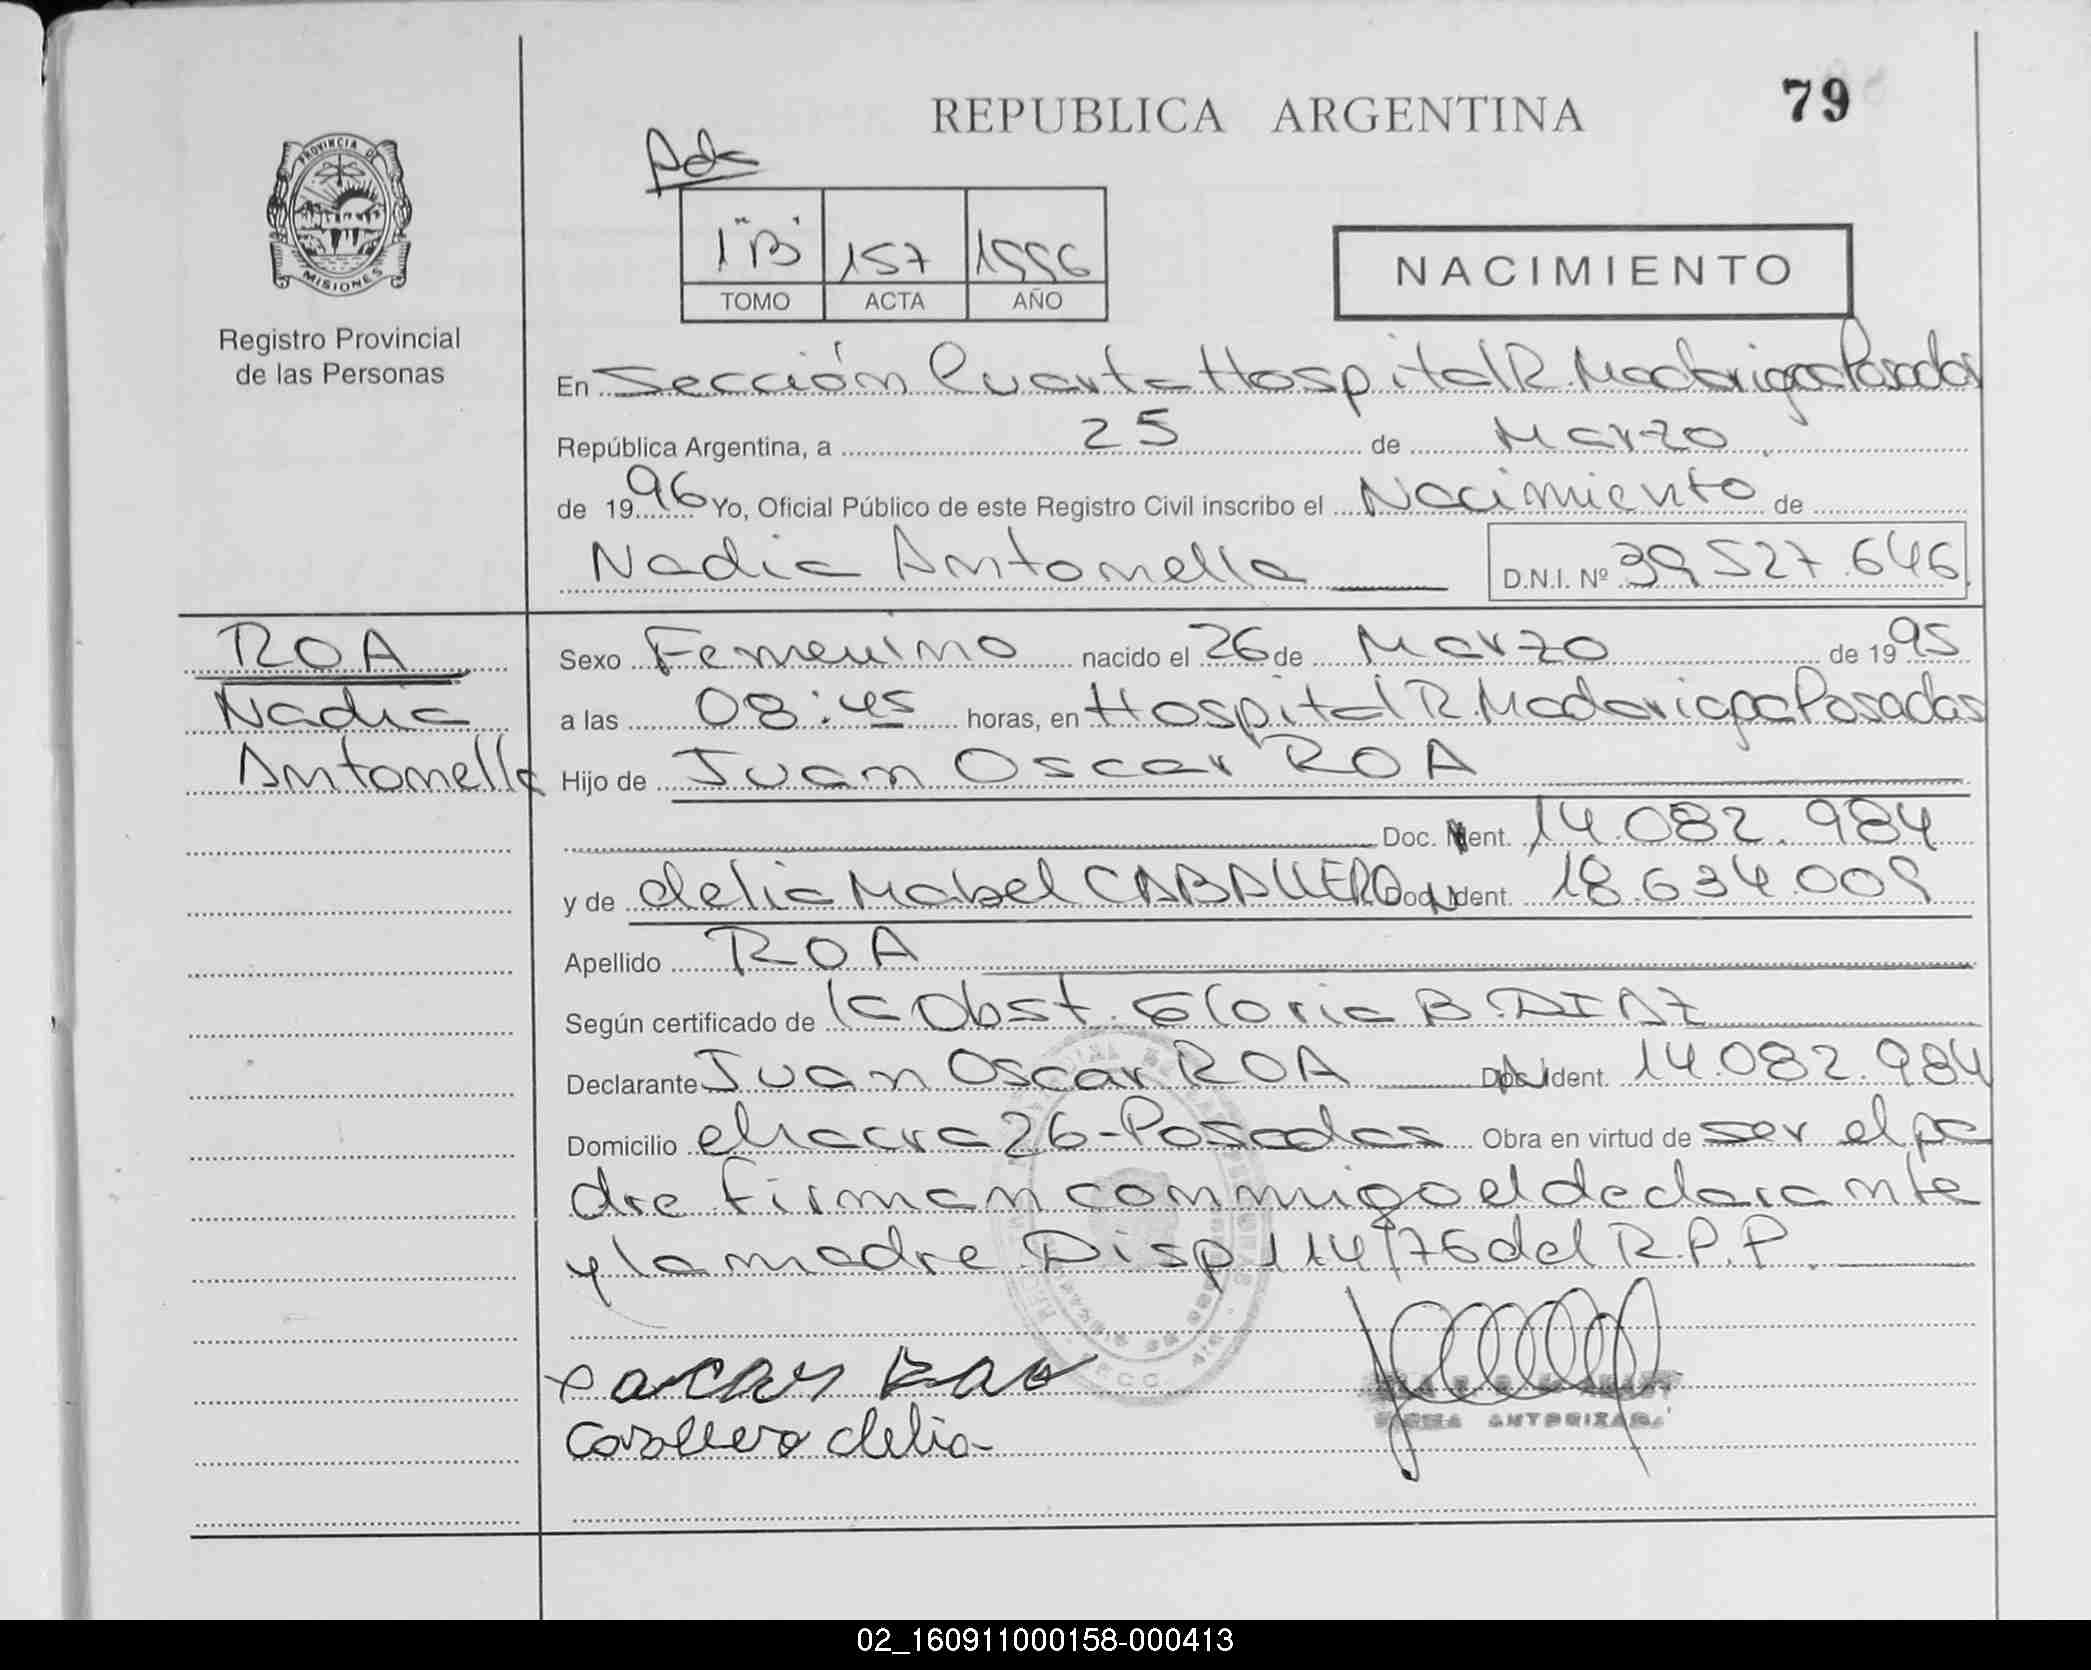 79
REPUBLICA ARGENTINA
PROVINCIA DE
MISIONES
Registro Provincial
de las Personas
Pdas
1 "B" 157 1996
TOMO ACTA AÑO
NACIMIENTO
En Sección Cuarta Hospital R. Madariaga Posadas
República Argentina, a 25 de Marzo
de 1996 Yo, Oficial Público de este Registro Civil inscribo el Nacimiento de
Nadia Antonella D.N.I. Nº 39.527.646
ROA
Nadia
Antonella
Sexo Femenino nacido el 26 de Marzo de 1995
a las 08:45 horas, en Hospital R. Madariaga Posadas
Hijo de Juan Oscar ROA
Doc. Ident. 14.082.984
y de delia Mabel CABALLERO Doc. Ident. 18.634.009
Apellido ROA
Según certificado de la Obst. Gloria B. DIAZ
Declarante Juan Oscar ROA Doc. Ident. 14.082.984
Domicilio chacra 26-Posadas Obra en virtud de ser el pa
dre firman conmigo el declarante
y la madre. Disp 114/76 del R.P.P.
Roa
Cavallero delia
FIRMA AUTORIZADA
02_160911000158-000413